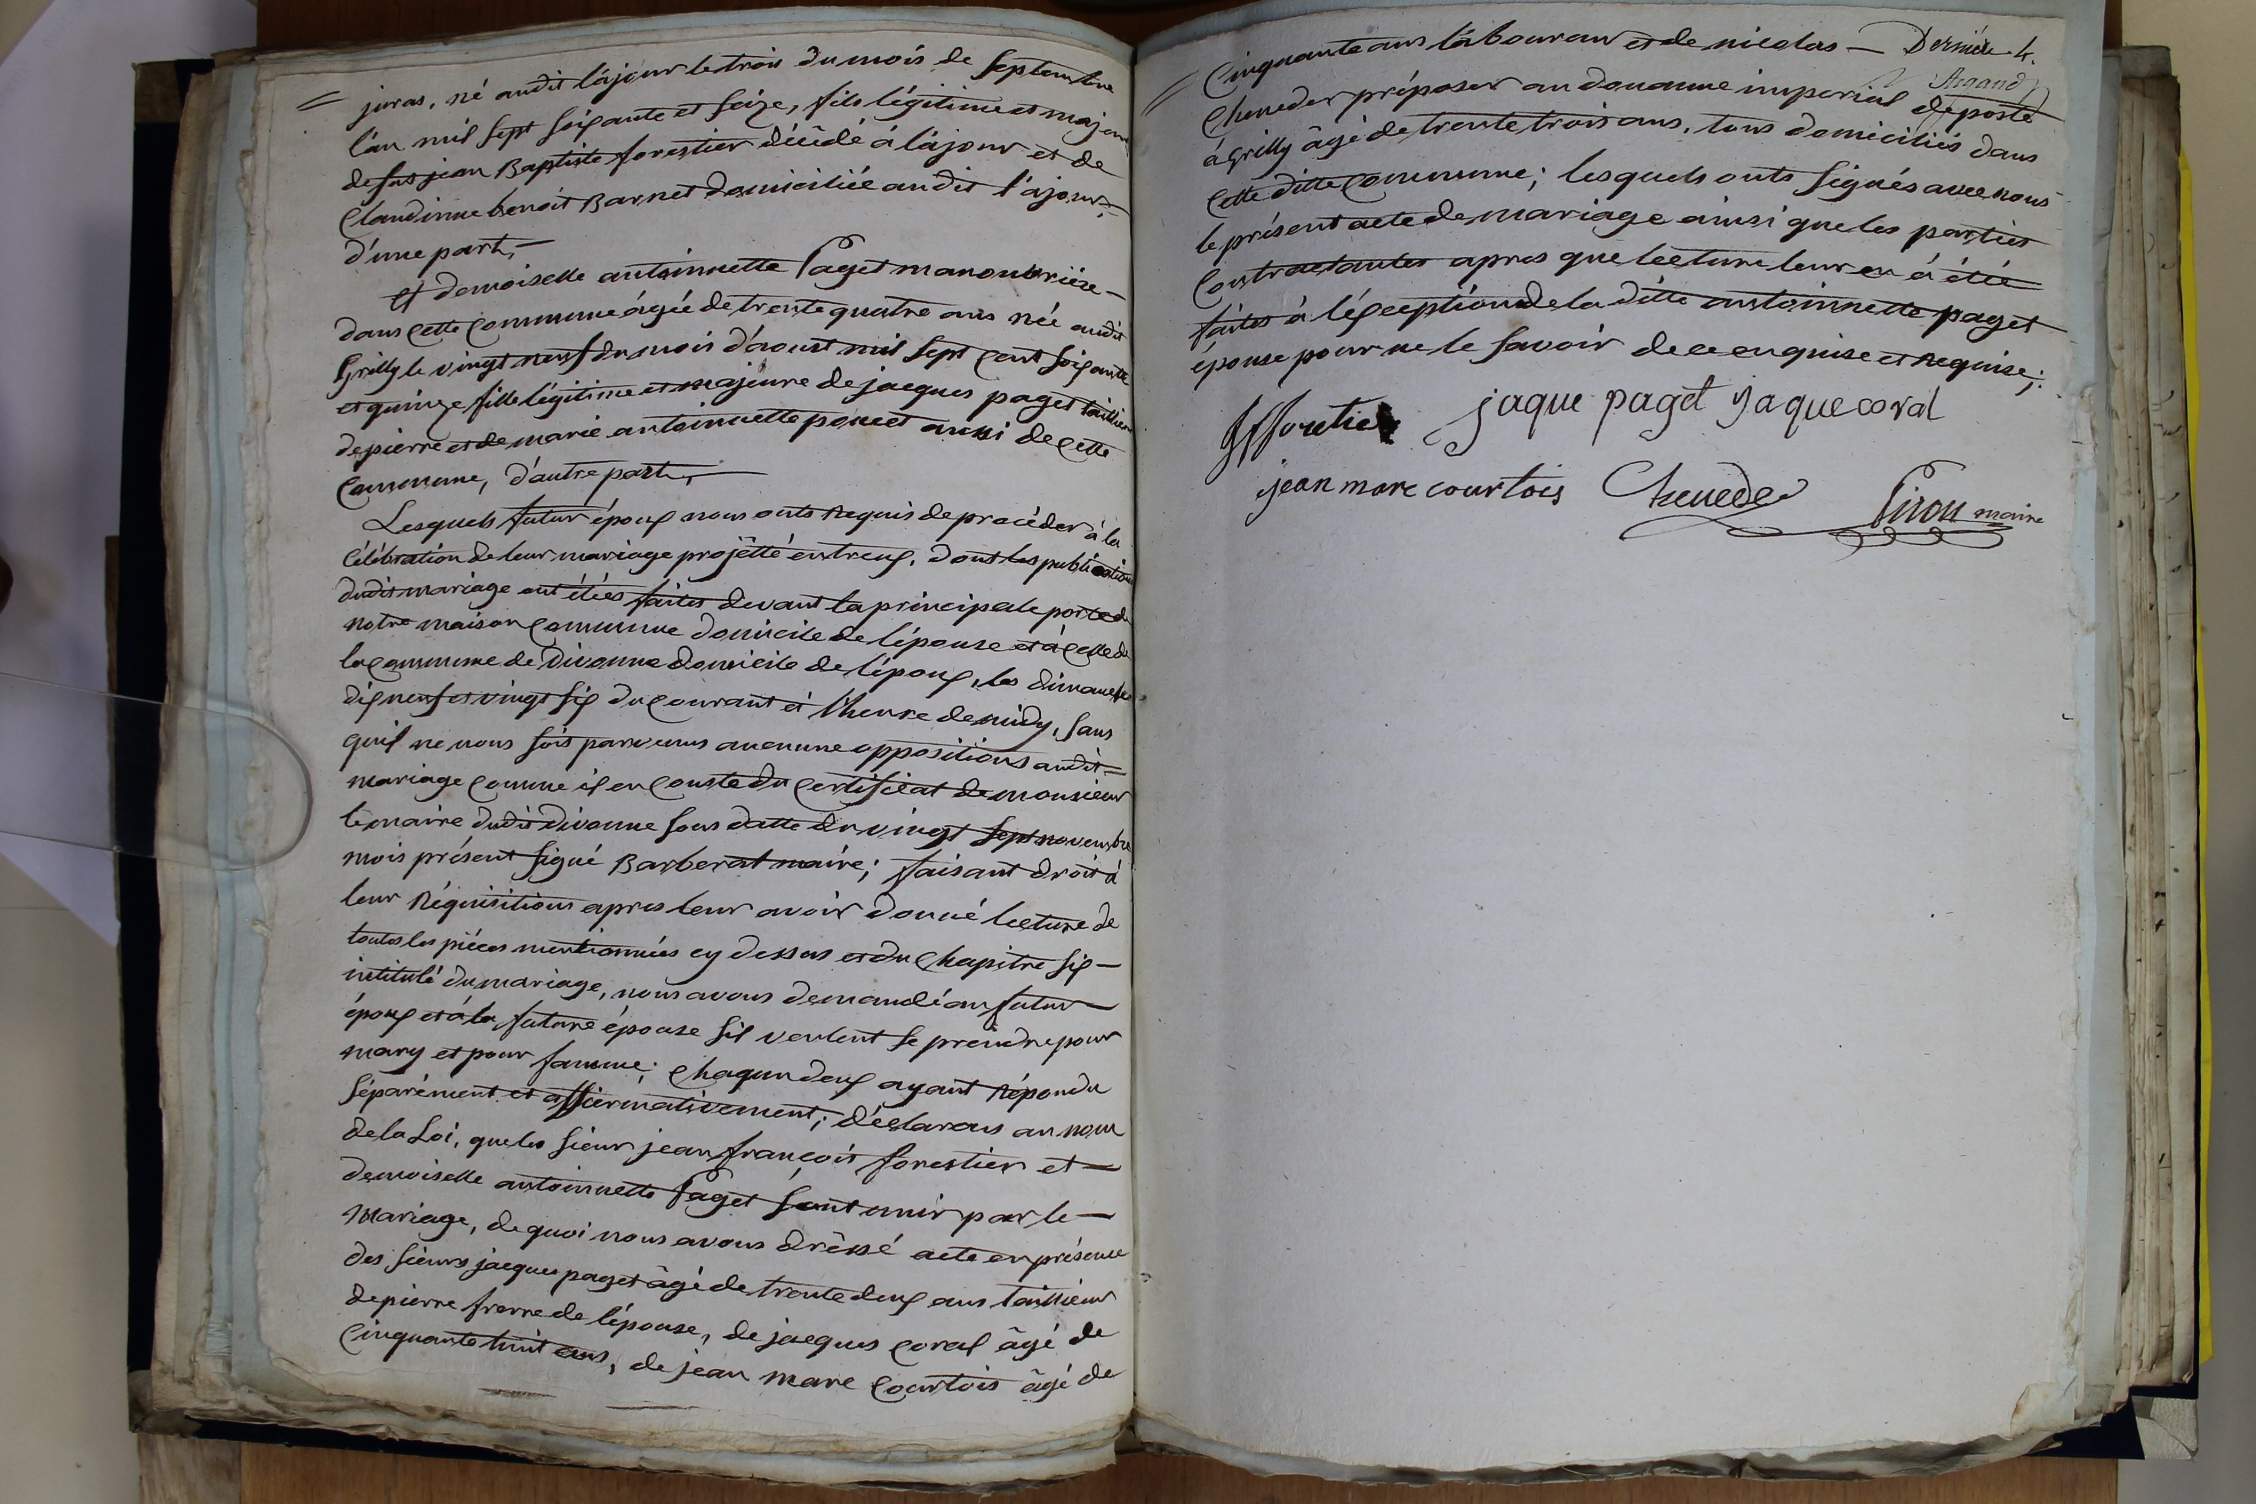 juras, né audit lájour le trois du mois de septembre
l'an mil sept soixante et seize, fils légitime et majeur
de fut jean Baptiste forestier décédé á lájour et de
Claudinne benoit Barnet domiciliée audit l'ájour,
d'une part,
et demoiselle antoinnette Paget manouvrière
dans cette Commune ágée de trente quatre ans née audit
Grilly le vingt neuf du mois d'aoust mil sept cent soixante
et quinze fille légitime et majeure de jacques paget taillieur
de pierre et de marie antoinnette poncet aussi de cette
Commune, d'autre part,
Lesquels futur époux nous onts requis de procéder á la
célébration de leur mariage projétté entreux, dont les publications
dudit mariage ont étées faites devant la principale porte de
notre maison Commune domicile de l'épouse et á celle de
la Commune de Divonne domicile de l'époux, les dimanche
dix neuf et vingt six du courant á l'heure de midy, sans
quil ne nous sois parvenus aucunne oppositions audit
mariage Comme il en Conste du Certificat de monsieur
le maire dudit divonne sous datte du vingt sept novembre
mois présent signé Barberat maire; faisant droit á
leur Réquisitions apres leur avoir donné lecture de
toutes les piéces mentionnées cy dessus et du Chapitre six
intitulé du mariage, nous avons demandé au futur
époux et á la future épouse sil veulent se prendre pour
mary et pour famme; chaqun deux ayant répondu
séparément et affiermativement; déclarons au nom
de la Loi, que les sieur jean françois forestier et
demoiselle antoinnette Paget sont unir par le
mariage, de quoi nous avons dréssé acte en présence
des sieurs jacques paget âgé de trente deux ans taillieur
de pierre frerre de l'épouse, de jacques coral âgé de
cinquante huit ans, de jean marc Courtois âgé de
Cinquante ans lábouraur et de nicolas Dernière 4.
Argand
Cheneder préposer au douanne imperial déposté
á Grilly âgé de trente trois ans, tous domiciliés dans
Cette ditte Commune; lesquels onts signés avec nous
le présent acte de mariage ainsi que les parties
Contractantes apres que lecture leur en á étée
faites á léxception de la ditte antoinnette paget
épouse pour ne le savoir de ce enquise et requise;
jaque paget jaque coral
jean marc courtois Chenede Girou maire